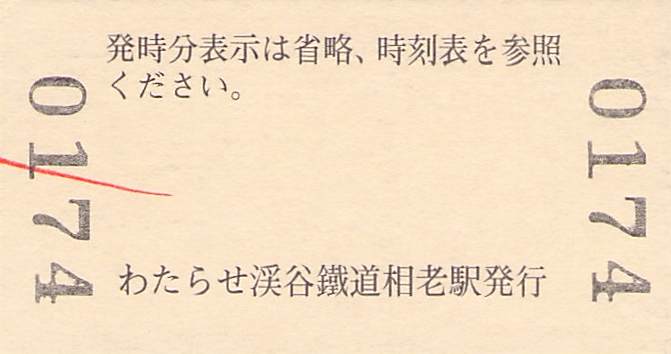 発時分表示は省略、時刻表を参照
ください。
0174
0174
わたらせ渓谷鐵道相老駅発行